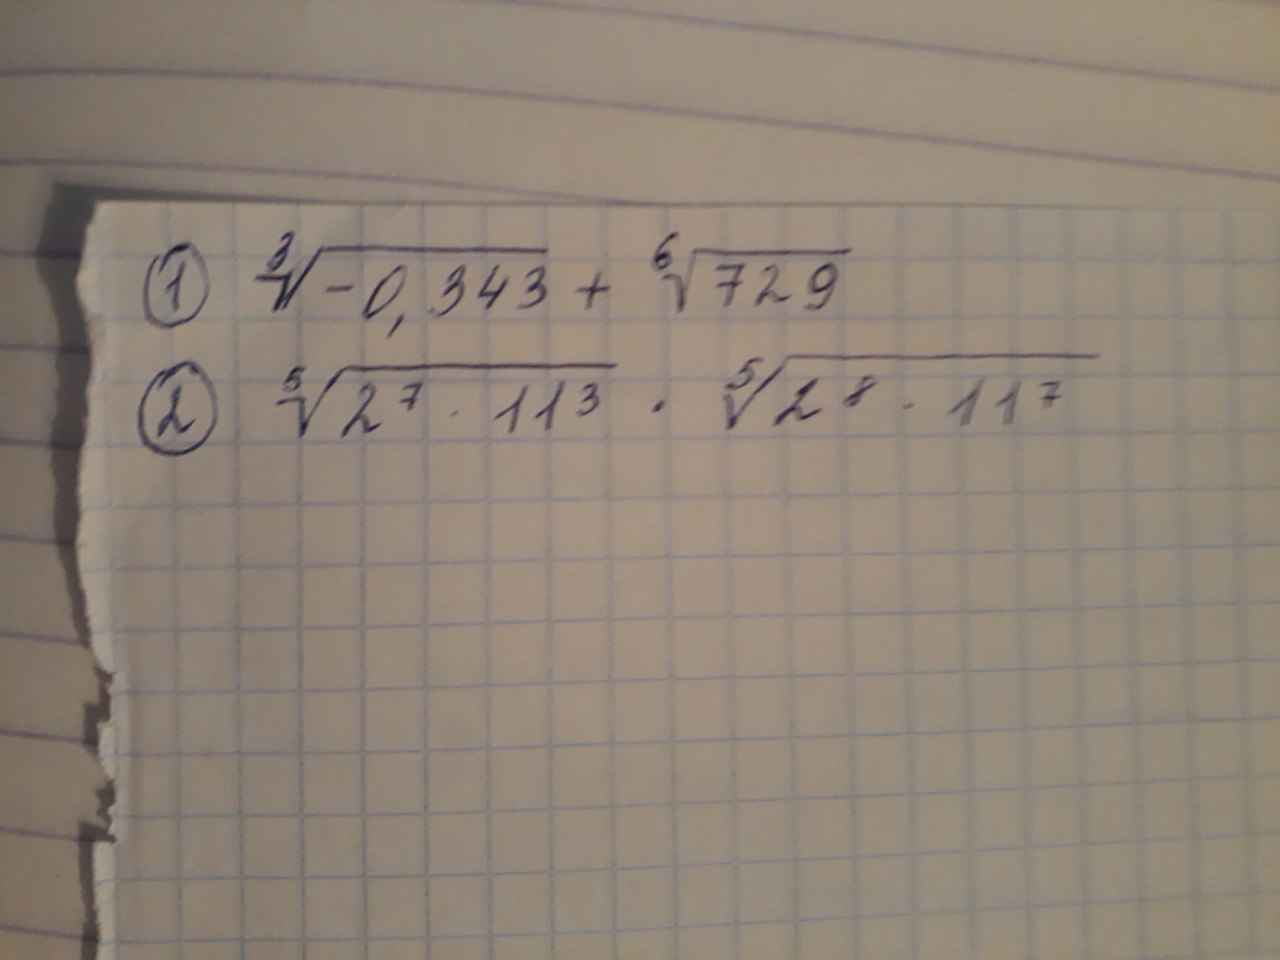 ① ∛(-0,343) + ⁶√729
② ⁵√(2⁷ · 11³) · ⁵√(2⁸ · 11⁷)